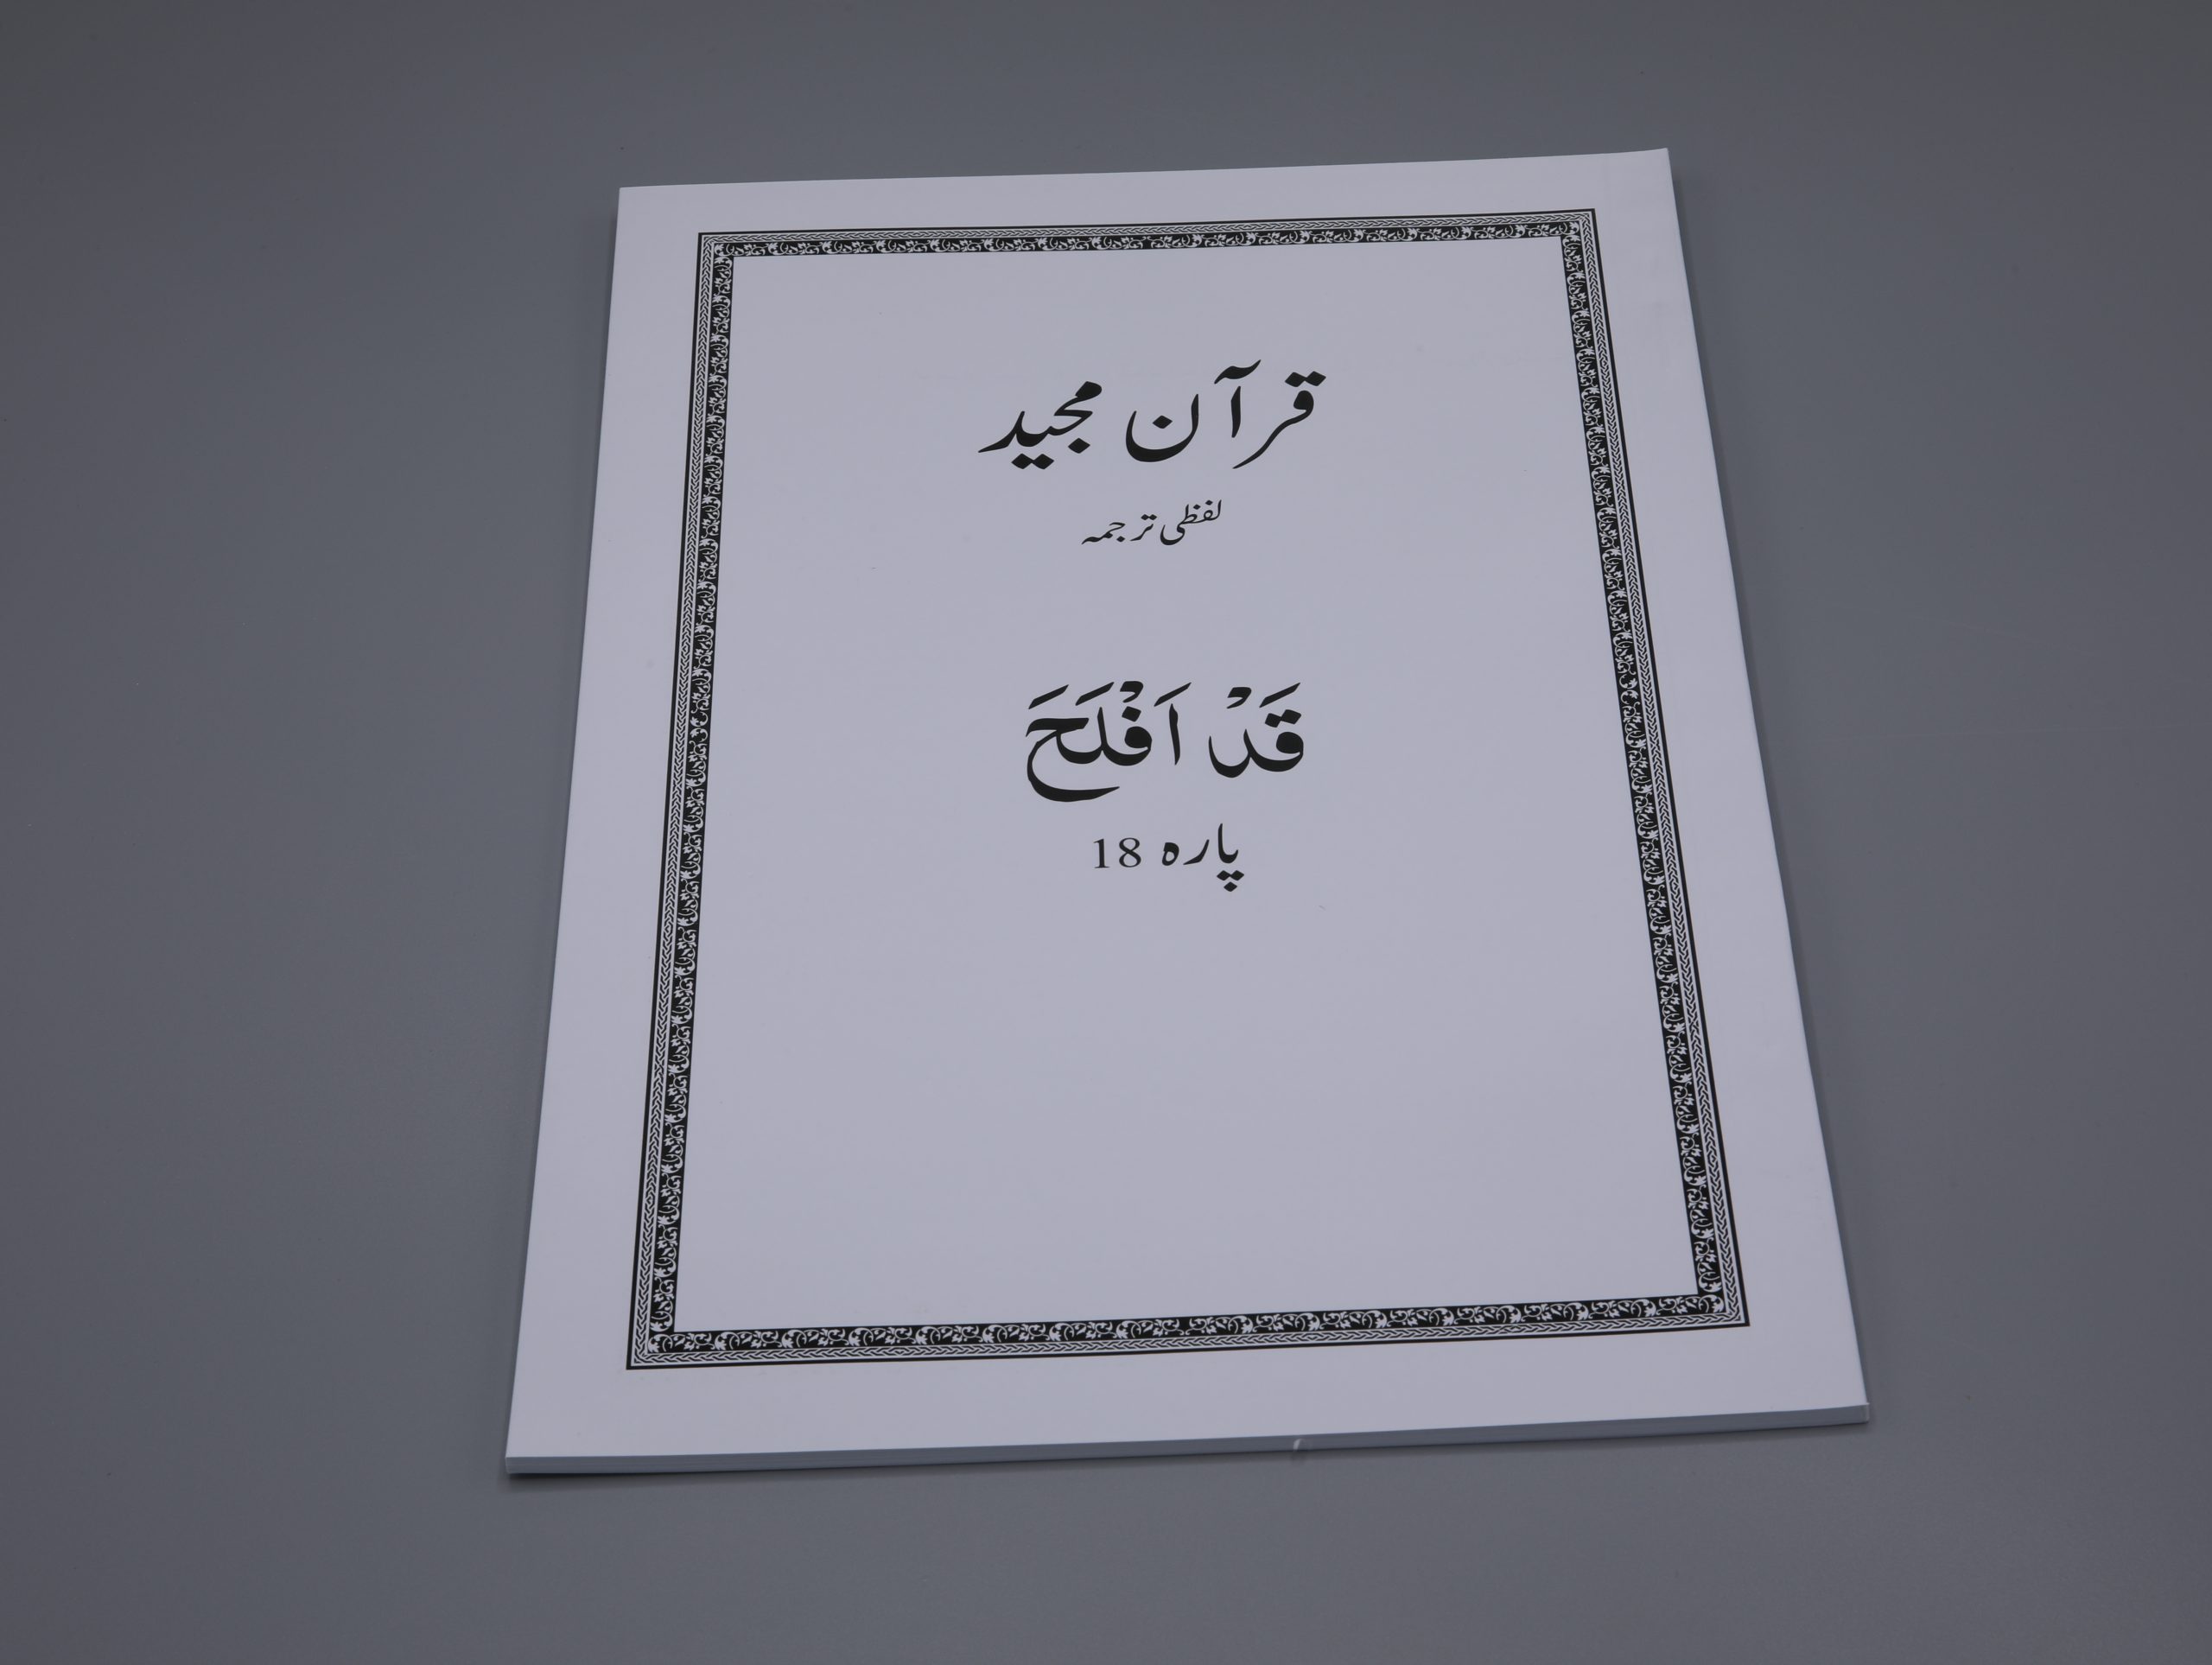 قرآن مجید
لفظی ترجمہ
قَدْ اَفْلَحَ
پارہ 18